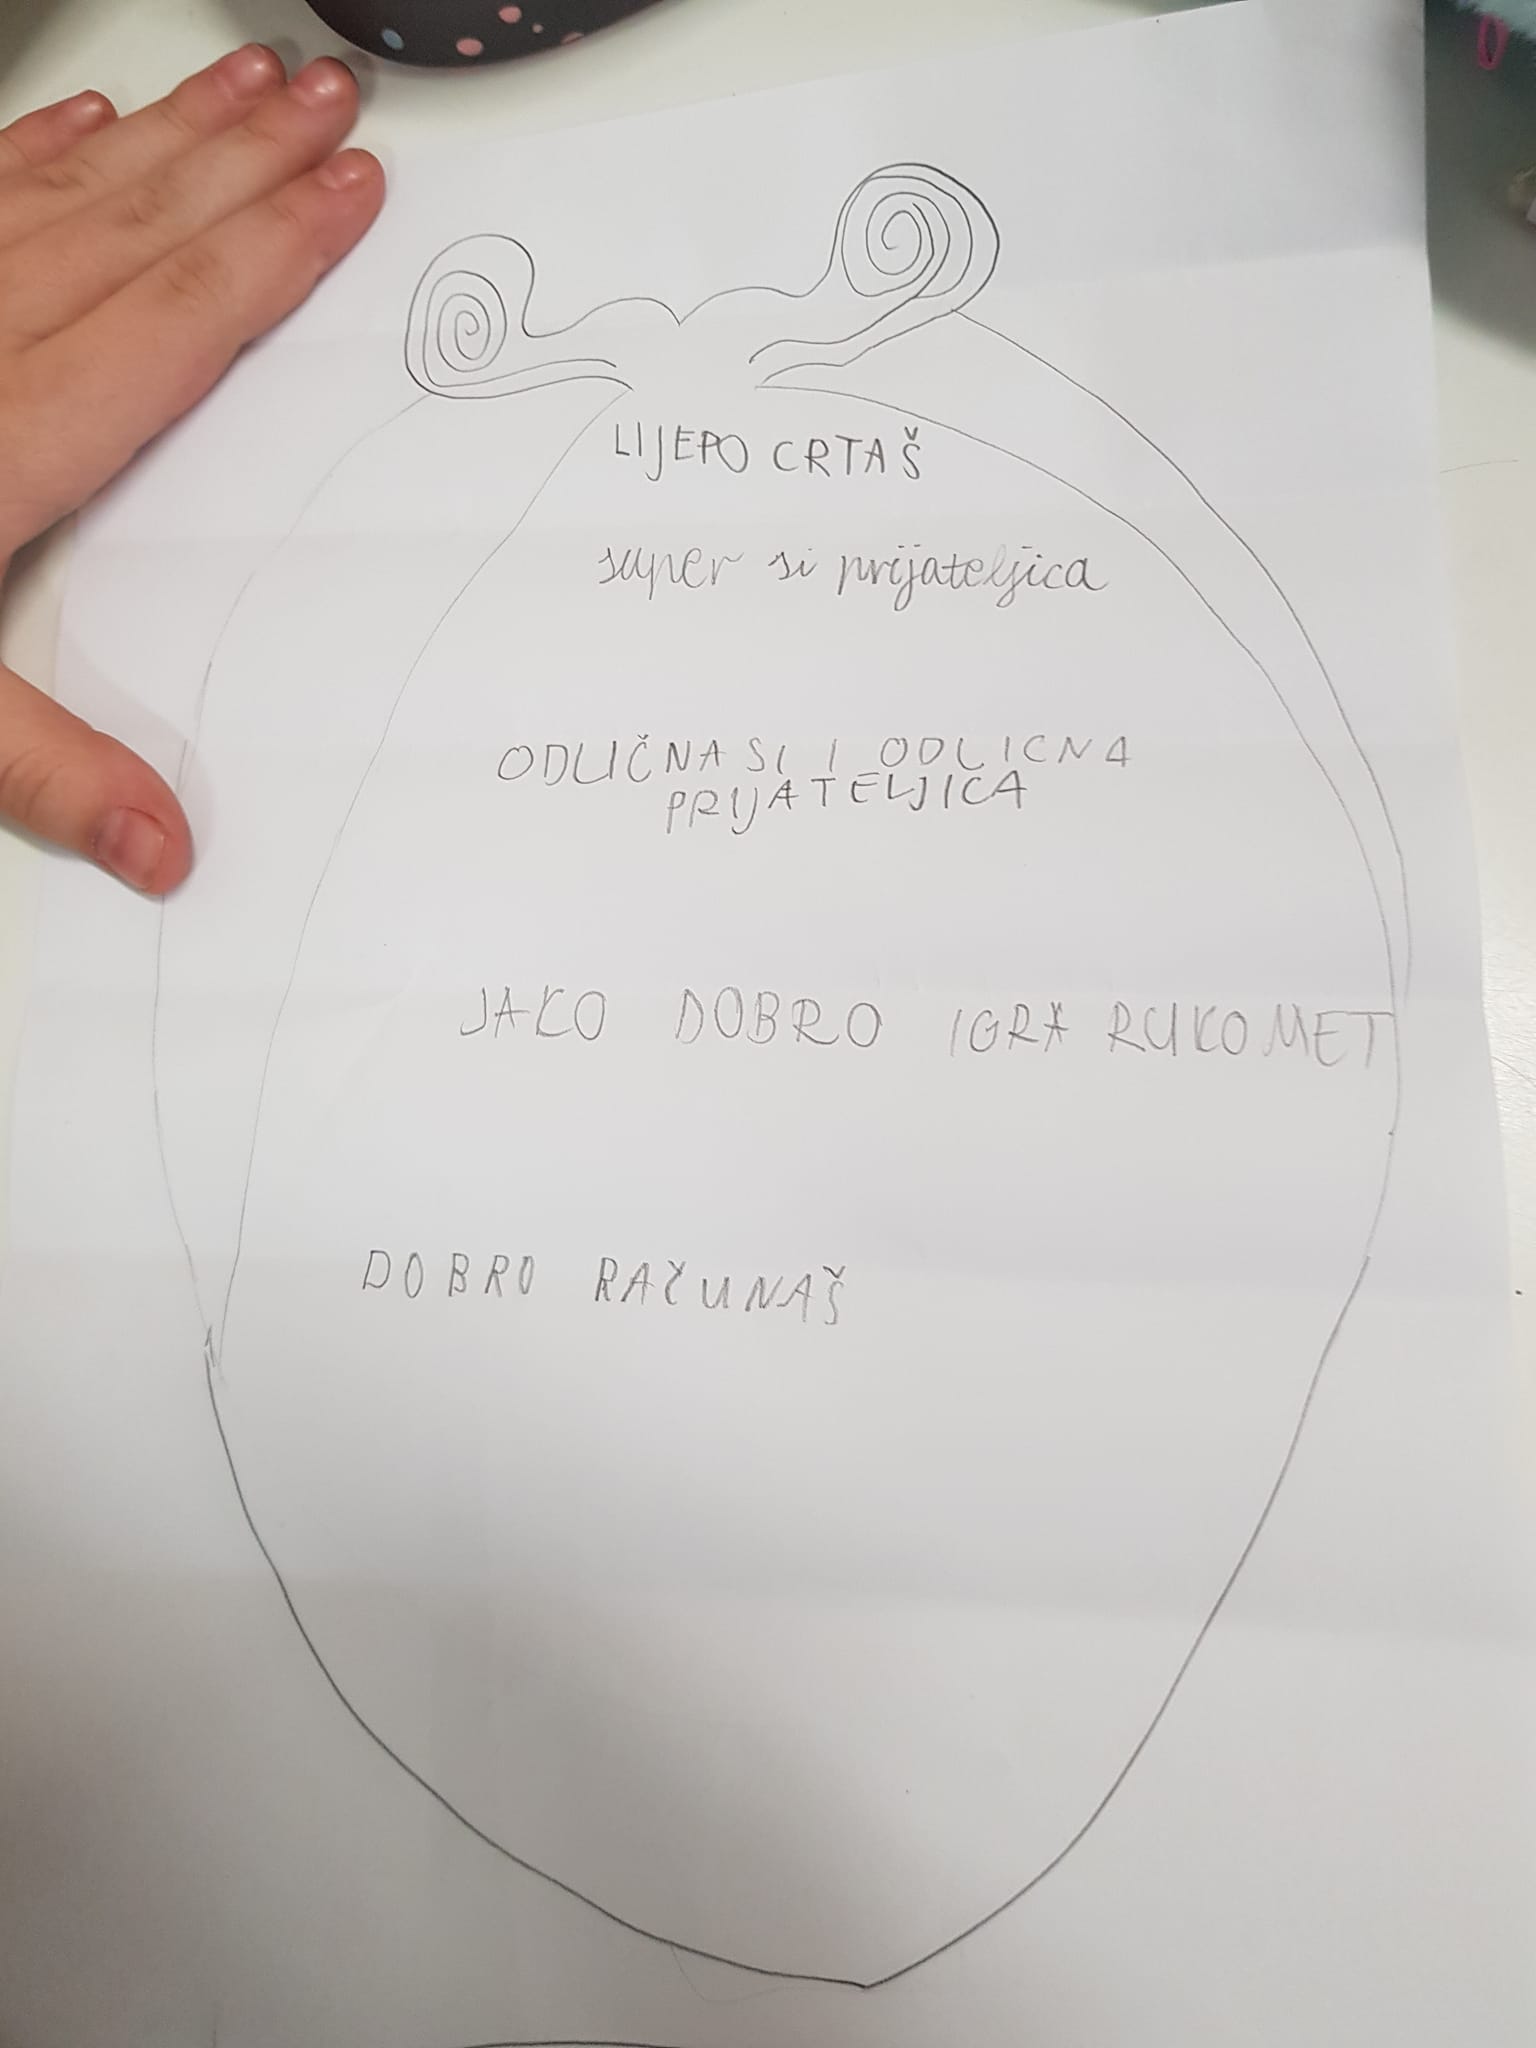 LIJEPO CRTAŠ
super si prijateljica
ODLIČNA SI I ODLICNA
PRIJATELJICA
JAKO DOBRO IGRA RUKOMET
DOBRO RAČUNAŠ